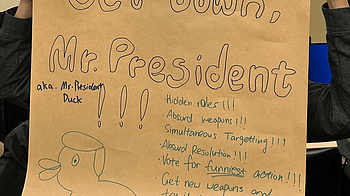 Get Down,
Mr. President
aka. Mr. President
Duck
! ! !
Hidden roles !!!
Absurd weapons !!!
Simultaneous Targetting !!!
Absurd Resolution !!!
• Vote for funniest action !!!
• Get new weapons and